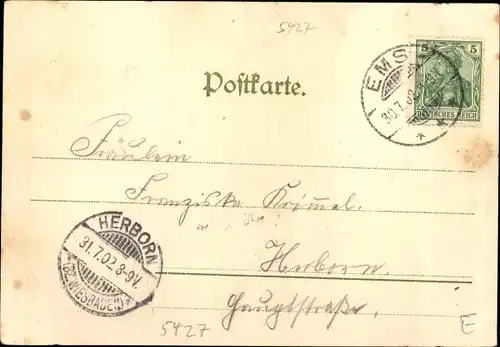 5427
Postkarte.
5 5
DEUTSCHES REICH
EMS
30.7.02
Fräulein
Franziska Krimel.
HERBORN
31.7.02.8-9V.
(BZ. WIESBADEN)
Herborn.
Hauptstraße.
5427
E